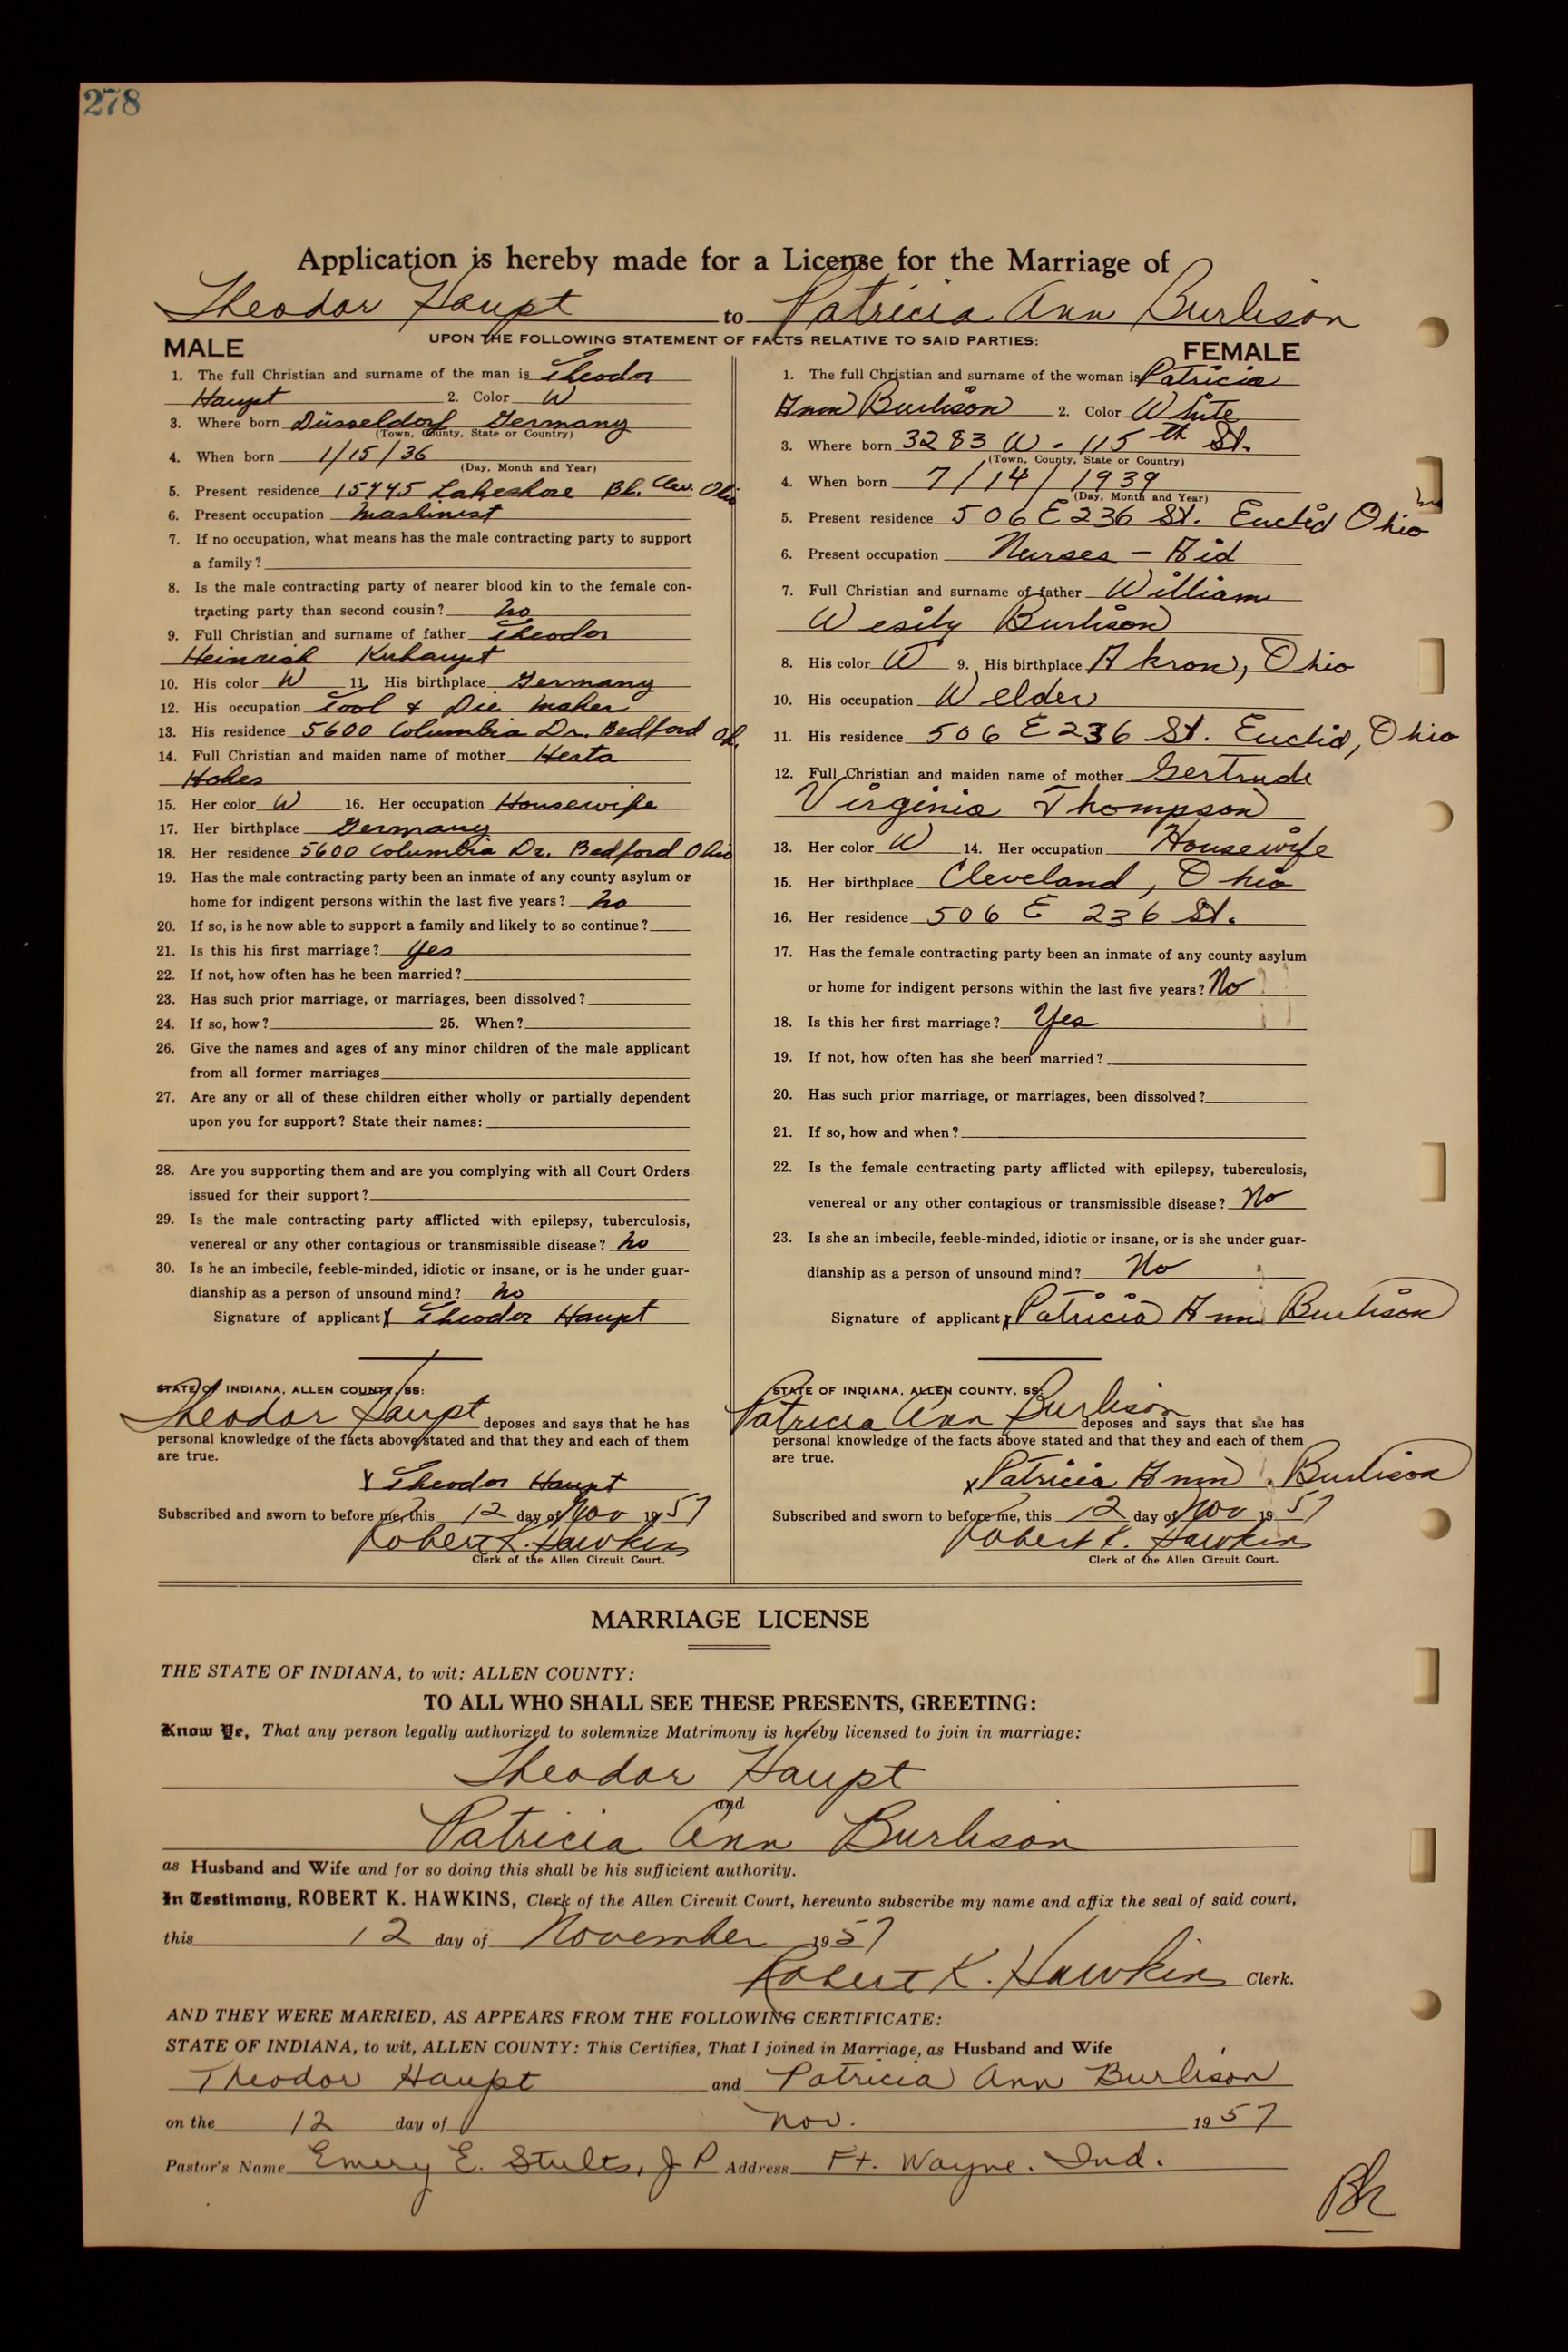 278
Application is hereby made for a License for the Marriage of
Theodor Haupt to Patricia Ann Burlison
UPON THE FOLLOWING STATEMENT OF FACTS RELATIVE TO SAID PARTIES:
MALE
1. The full Christian and surname of the man is Theodor
Haupt 2. Color W
3. Where born Düsseldorf Germany
(Town, County, State or Country)
4. When born 1/15/36
(Day, Month and Year)
5. Present residence 15445 Lakeshore Bl. Clev. Ohio
6. Present occupation Mashinist
7. If no occupation, what means has the male contracting party to support
a family?
8. Is the male contracting party of nearer blood kin to the female con-
tracting party than second cousin? no
9. Full Christian and surname of father Theodor
Heinrich Kuhaupt
10. His color W 11. His birthplace Germany
12. His occupation Tool & Die maker
13. His residence 5600 Columbia Dr. Bedford Oh.
14. Full Christian and maiden name of mother Herta
Hohes
15. Her color W 16. Her occupation Housewife
17. Her birthplace Germany
18. Her residence 5600 Columbia Dr. Bedford Ohio
19. Has the male contracting party been an inmate of any county asylum or
home for indigent persons within the last five years? no
20. If so, is he now able to support a family and likely to so continue?
21. Is this his first marriage? yes
22. If not, how often has he been married?
23. Has such prior marriage, or marriages, been dissolved?
24. If so, how? 25. When?
26. Give the names and ages of any minor children of the male applicant
from all former marriages
27. Are any or all of these children either wholly or partially dependent
upon you for support? State their names:
28. Are you supporting them and are you complying with all Court Orders
issued for their support?
29. Is the male contracting party afflicted with epilepsy, tuberculosis,
venereal or any other contagious or transmissible disease? no
30. Is he an imbecile, feeble-minded, idiotic or insane, or is he under guar-
dianship as a person of unsound mind? no
Signature of applicant x Theodor Haupt
STATE OF INDIANA, ALLEN COUNTY, SS:
Theodor Haupt deposes and says that he has
personal knowledge of the facts above stated and that they and each of them
are true.
x Theodor Haupt
Subscribed and sworn to before me, this 12 day of Nov 1957
Robert K. Hawkins
Clerk of the Allen Circuit Court.
FEMALE
1. The full Christian and surname of the woman is Patricia
Ann Burlison 2. Color White
3. Where born 3283 W. 115th St.
(Town, County, State or Country)
4. When born 7/14/1939
(Day, Month and Year)
5. Present residence 506 E 236 St. Euclid Ohio
6. Present occupation Nurses - Aid
7. Full Christian and surname of father William
Wesily Burlison
8. His color W 9. His birthplace Akron, Ohio
10. His occupation Welder
11. His residence 506 E 236 St. Euclid, Ohio
12. Full Christian and maiden name of mother Gertrude
Virginia Thompson
13. Her color W 14. Her occupation Housewife
15. Her birthplace Cleveland, Ohio
16. Her residence 506 E 236 St.
17. Has the female contracting party been an inmate of any county asylum
or home for indigent persons within the last five years? No
18. Is this her first marriage? Yes
19. If not, how often has she been married?
20. Has such prior marriage, or marriages, been dissolved?
21. If so, how and when?
22. Is the female contracting party afflicted with epilepsy, tuberculosis,
venereal or any other contagious or transmissible disease? No
23. Is she an imbecile, feeble-minded, idiotic or insane, or is she under guar-
dianship as a person of unsound mind? No
Signature of applicant x Patricia Ann Burlison
STATE OF INDIANA, ALLEN COUNTY, SS:
Patricia Ann Burlison deposes and says that she has
personal knowledge of the facts above stated and that they and each of them
are true.
x Patricia Ann Burlison
Subscribed and sworn to before me, this 12 day of Nov 1957
Robert K. Hawkins
Clerk of the Allen Circuit Court.
MARRIAGE LICENSE
THE STATE OF INDIANA, to wit: ALLEN COUNTY:
TO ALL WHO SHALL SEE THESE PRESENTS, GREETING:
Know Ye, That any person legally authorized to solemnize Matrimony is hereby licensed to join in marriage:
Theodor Haupt
and
Patricia Ann Burlison
as Husband and Wife and for so doing this shall be his sufficient authority.
In Testimony, ROBERT K. HAWKINS, Clerk of the Allen Circuit Court, hereunto subscribe my name and affix the seal of said court,
this 12 day of November 1957
Robert K. Hawkins Clerk.
AND THEY WERE MARRIED, AS APPEARS FROM THE FOLLOWING CERTIFICATE:
STATE OF INDIANA, to wit, ALLEN COUNTY: This Certifies, That I joined in Marriage, as Husband and Wife
Theodor Haupt and Patricia Ann Burlison
on the 12 day of Nov. 1957
Pastor's Name Emery E. Stults, J P Address Ft. Wayne. Ind.